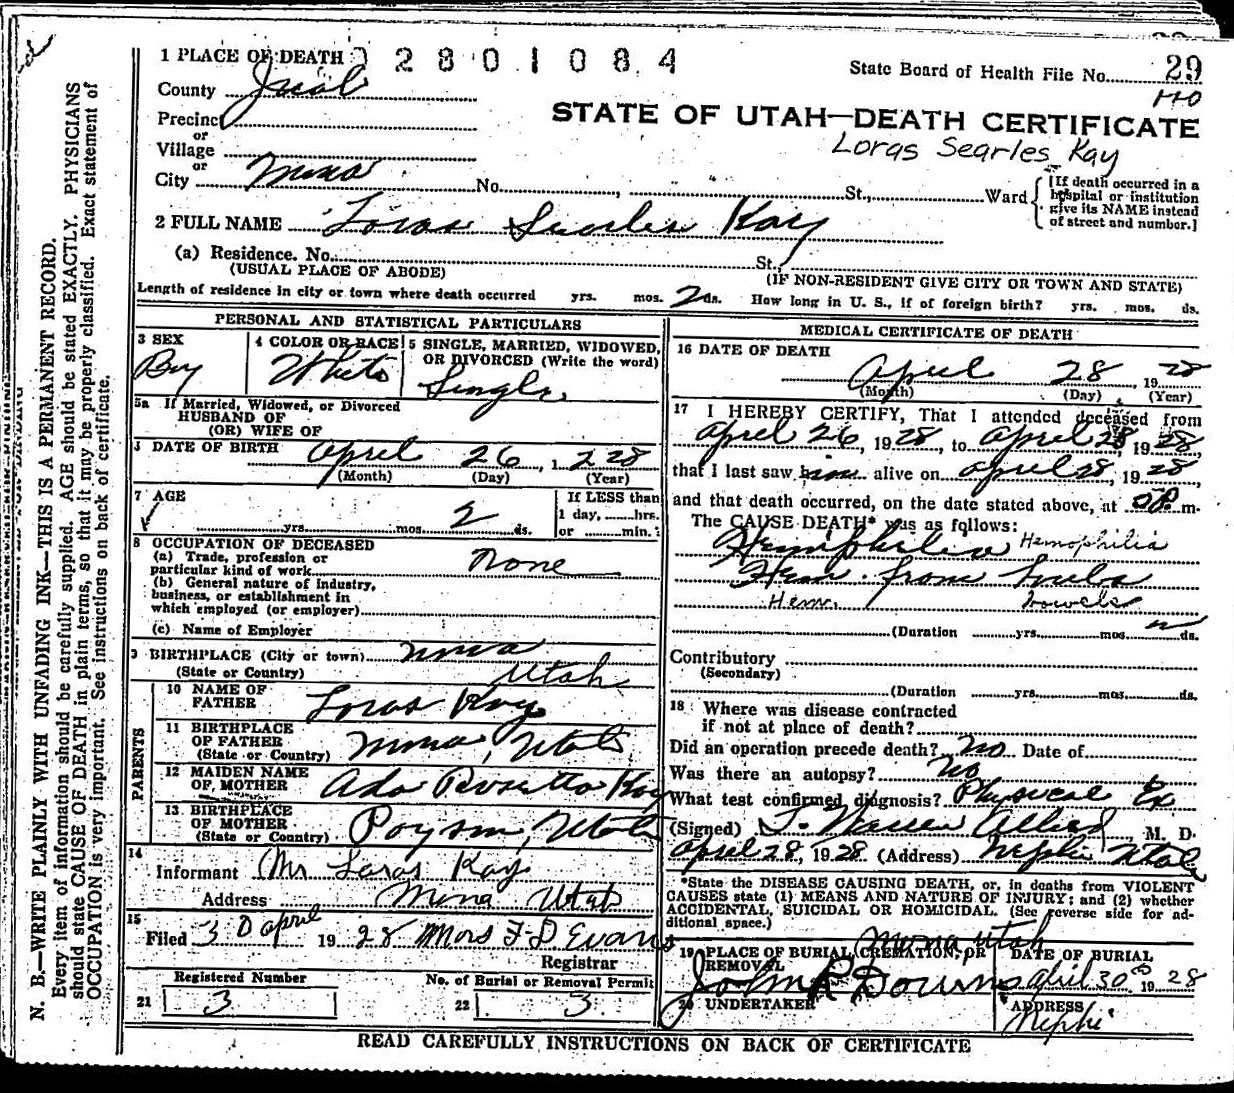 1 PLACE OF DEATH 2 8 0 1 0 8 4
State Board of Health File No. 29
110
County Juab
STATE OF UTAH—DEATH CERTIFICATE
Precinct
or
Loras Searles Kay
Village
or
City Mona No. St., Ward
[If death occurred in a
hospital or institution
give its NAME instead
of street and number.]
2 FULL NAME Loras Searles Kay
(a) Residence. No. St.,
(USUAL PLACE OF ABODE) (IF NON-RESIDENT GIVE CITY OR TOWN AND STATE)
Length of residence in city or town where death occurred yrs. mos. 2 ds. How long in U. S., if of foreign birth? yrs. mos. ds.
PERSONAL AND STATISTICAL PARTICULARS
3 SEX
Boy
4 COLOR OR RACE
White
5 SINGLE, MARRIED, WIDOWED,
OR DIVORCED (Write the word)
Single
5a If Married, Widowed, or Divorced
HUSBAND OF
(OR) WIFE OF
DATE OF BIRTH April 26, 1 28
(Month) (Day) (Year)
7 AGE
yrs. mos. 2 ds.
If LESS than
1 day, hrs.
or min.
8 OCCUPATION OF DECEASED
(a) Trade, profession or
particular kind of work None
(b) General nature of industry,
business, or establishment in
which employed (or employer)
(c) Name of Employer
9 BIRTHPLACE (City or town) Mona
(State or Country) Utah
PARENTS
10 NAME OF
FATHER Loras Kay
11 BIRTHPLACE
OF FATHER
(State or Country) Mona, Utah
12 MAIDEN NAME
OF MOTHER Ada Rosetta Kay
13 BIRTHPLACE
OF MOTHER
(State or Country) Payson, Utah
14
Informant Mr Loras Kay
Address Mona Utah
15
Filed 30 april 1928 Mrs F D Evans
Registrar
Registered Number
21 3
No. of Burial or Removal Permit
22 3
MEDICAL CERTIFICATE OF DEATH
16 DATE OF DEATH
April 28, 1928
(Month) (Day) (Year)
17 I HEREBY CERTIFY, That I attended deceased from
April 26, 1928, to April 28, 1928,
that I last saw him alive on April 28, 1928,
and that death occurred, on the date stated above, at P. m.
The CAUSE DEATH* was as follows:
Hemophilia Hemophilia
Hem. from bowels
Hem. bowels
(Duration yrs. mos. ds.
Contributory
(Secondary)
(Duration yrs. mos. ds.
18 Where was disease contracted
if not at place of death?
Did an operation precede death? No Date of
Was there an autopsy? No
What test confirmed diagnosis? Physical Ex
(Signed) T. Warren Allred, M. D.
April 28, 1928 (Address) Nephi Utah
*State the DISEASE CAUSING DEATH, or, in deaths from VIOLENT
CAUSES state (1) MEANS AND NATURE OF INJURY; and (2) whether
ACCIDENTAL, SUICIDAL OR HOMICIDAL. (See reverse side for ad-
ditional space.)
19 PLACE OF BURIAL, CREMATION, OR
REMOVAL
Mona Utah
DATE OF BURIAL
April 30 1928
20 UNDERTAKER
John R Downs
ADDRESS
Nephi
READ CAREFULLY INSTRUCTIONS ON BACK OF CERTIFICATE
N. B.—WRITE PLAINLY WITH UNFADING INK—THIS IS A PERMANENT RECORD.
Every item of information should be carefully supplied. AGE should be stated EXACTLY. PHYSICIANS
should state CAUSE OF DEATH in plain terms, so that it may be properly classified. Exact statement of
OCCUPATION is very important. See instructions on back of certificate.